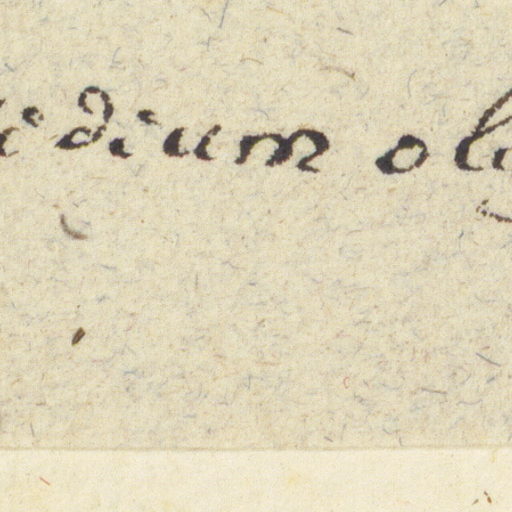 idium ol